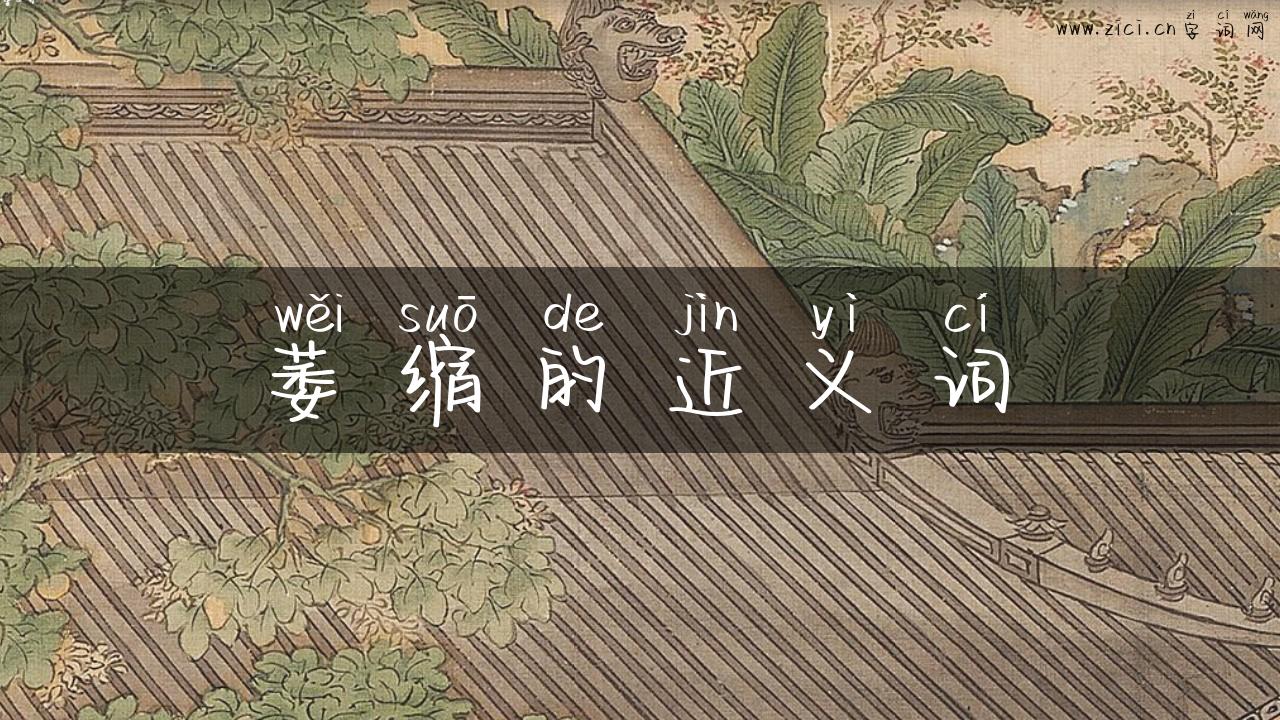 zì cí wǎng
www.zici.cn 字 词 网
wěi suō de jìn yì cí
萎 缩 的 近 义 词